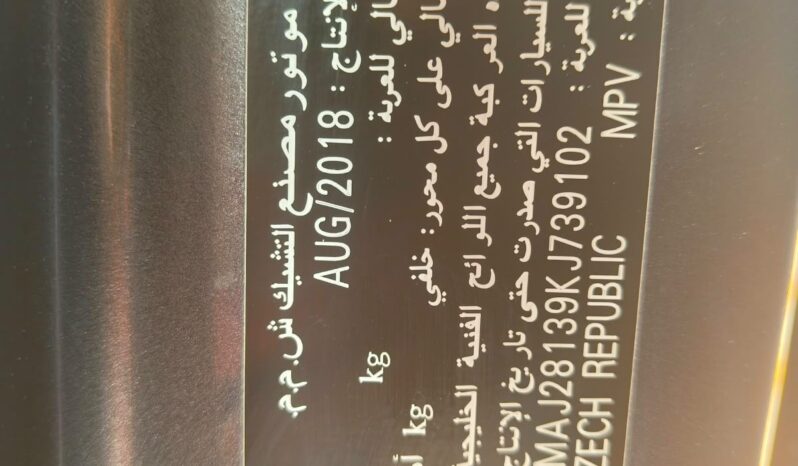 موتور مصنع التشيك ش.م.م.
لإنتاج : AUG/2018
الي للعربة : kg
الي على كل محور: خلفي kg
ه المركبة جميع اللوائح الفنية الخليجية
للسيارات التي صدرت حتى تاريخ الإنتاج
للعربة : MAJ28139KJ739102
ية : MPV ZECH REPUBLIC